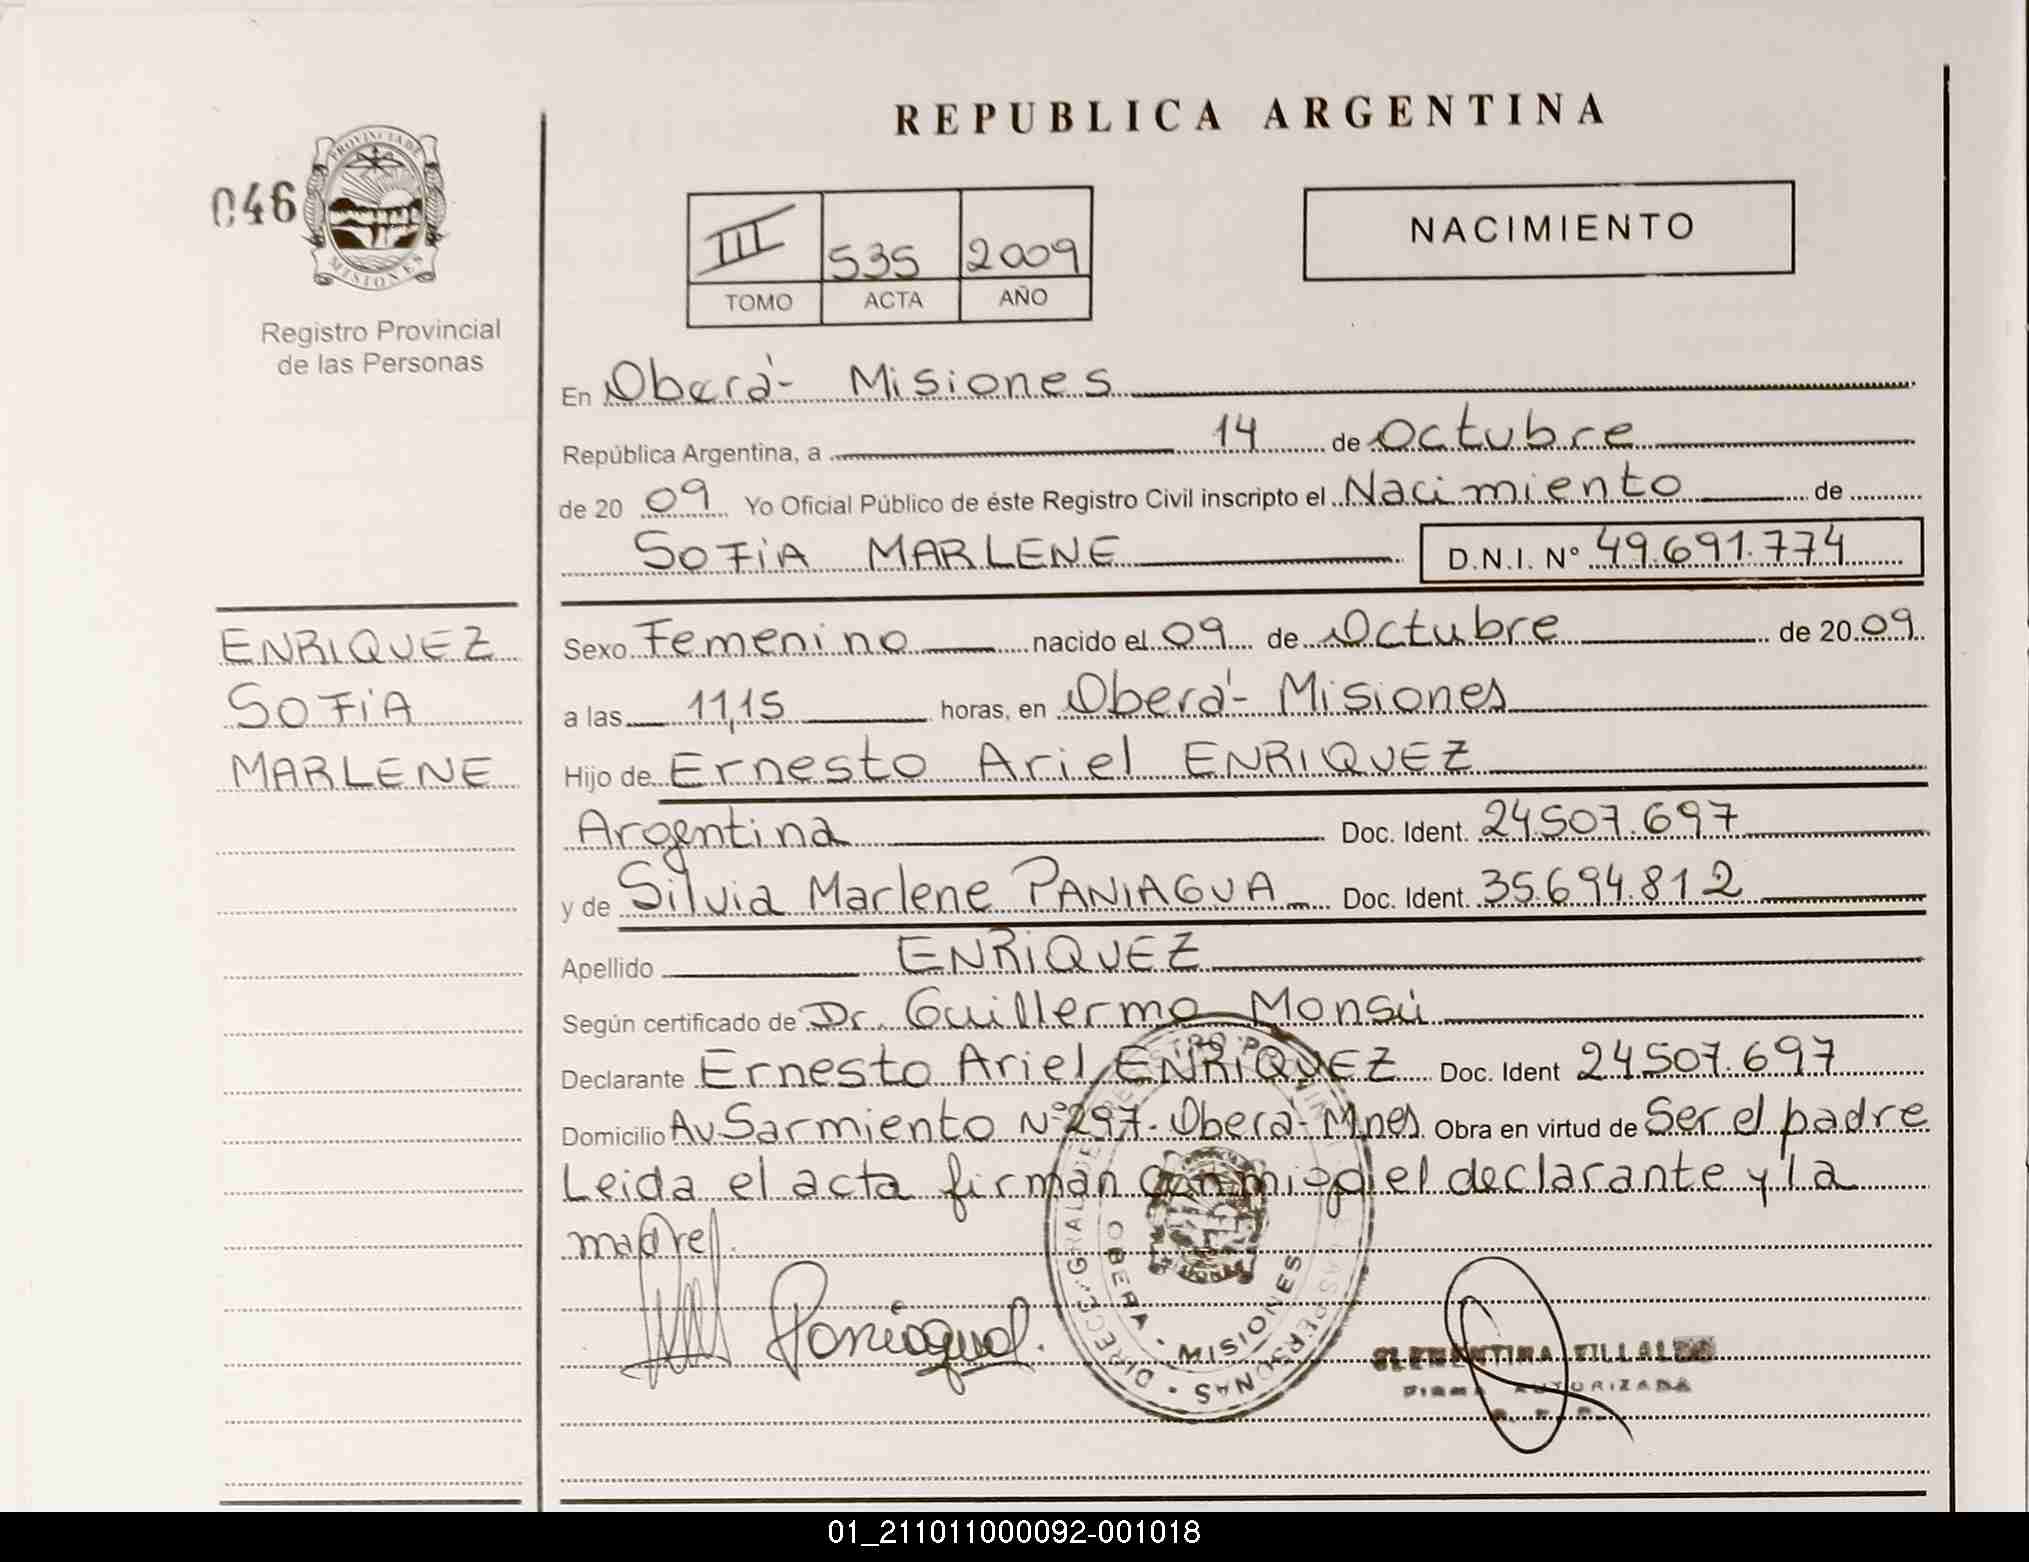 REPUBLICA ARGENTINA
046
PROVINCIA DE
MISIONES
Registro Provincial
de las Personas
III 535 2009
TOMO ACTA AÑO
NACIMIENTO
En Oberá - Misiones
República Argentina, a 14 de Octubre
de 20 09 Yo Oficial Público de éste Registro Civil inscripto el Nacimiento de
SOFIA MARLENE D.N.I. N° 49.691.774
ENRIQUEZ
SOFIA
MARLENE
Sexo Femenino nacido el 09 de Octubre de 20 09
a las 11,15 horas, en Oberá - Misiones
Hijo de Ernesto Ariel ENRIQUEZ
Argentina Doc. Ident. 24507.697
y de Silvia Marlene PANIAGUA Doc. Ident. 35.694.812
Apellido ENRIQUEZ
Según certificado de Dr. Guillermo Monsú
Declarante Ernesto Ariel ENRIQUEZ Doc. Ident 24507.697
Domicilio Av Sarmiento N° 297 - Oberá - Mnes Obra en virtud de Ser el padre
Leida el acta firman conmigo el declarante y la
madre.
Paniagua
OBERA - MISIONES
CLEMENTINA VILLALBA
FIRMA AUTORIZADA
01_211011000092-001018